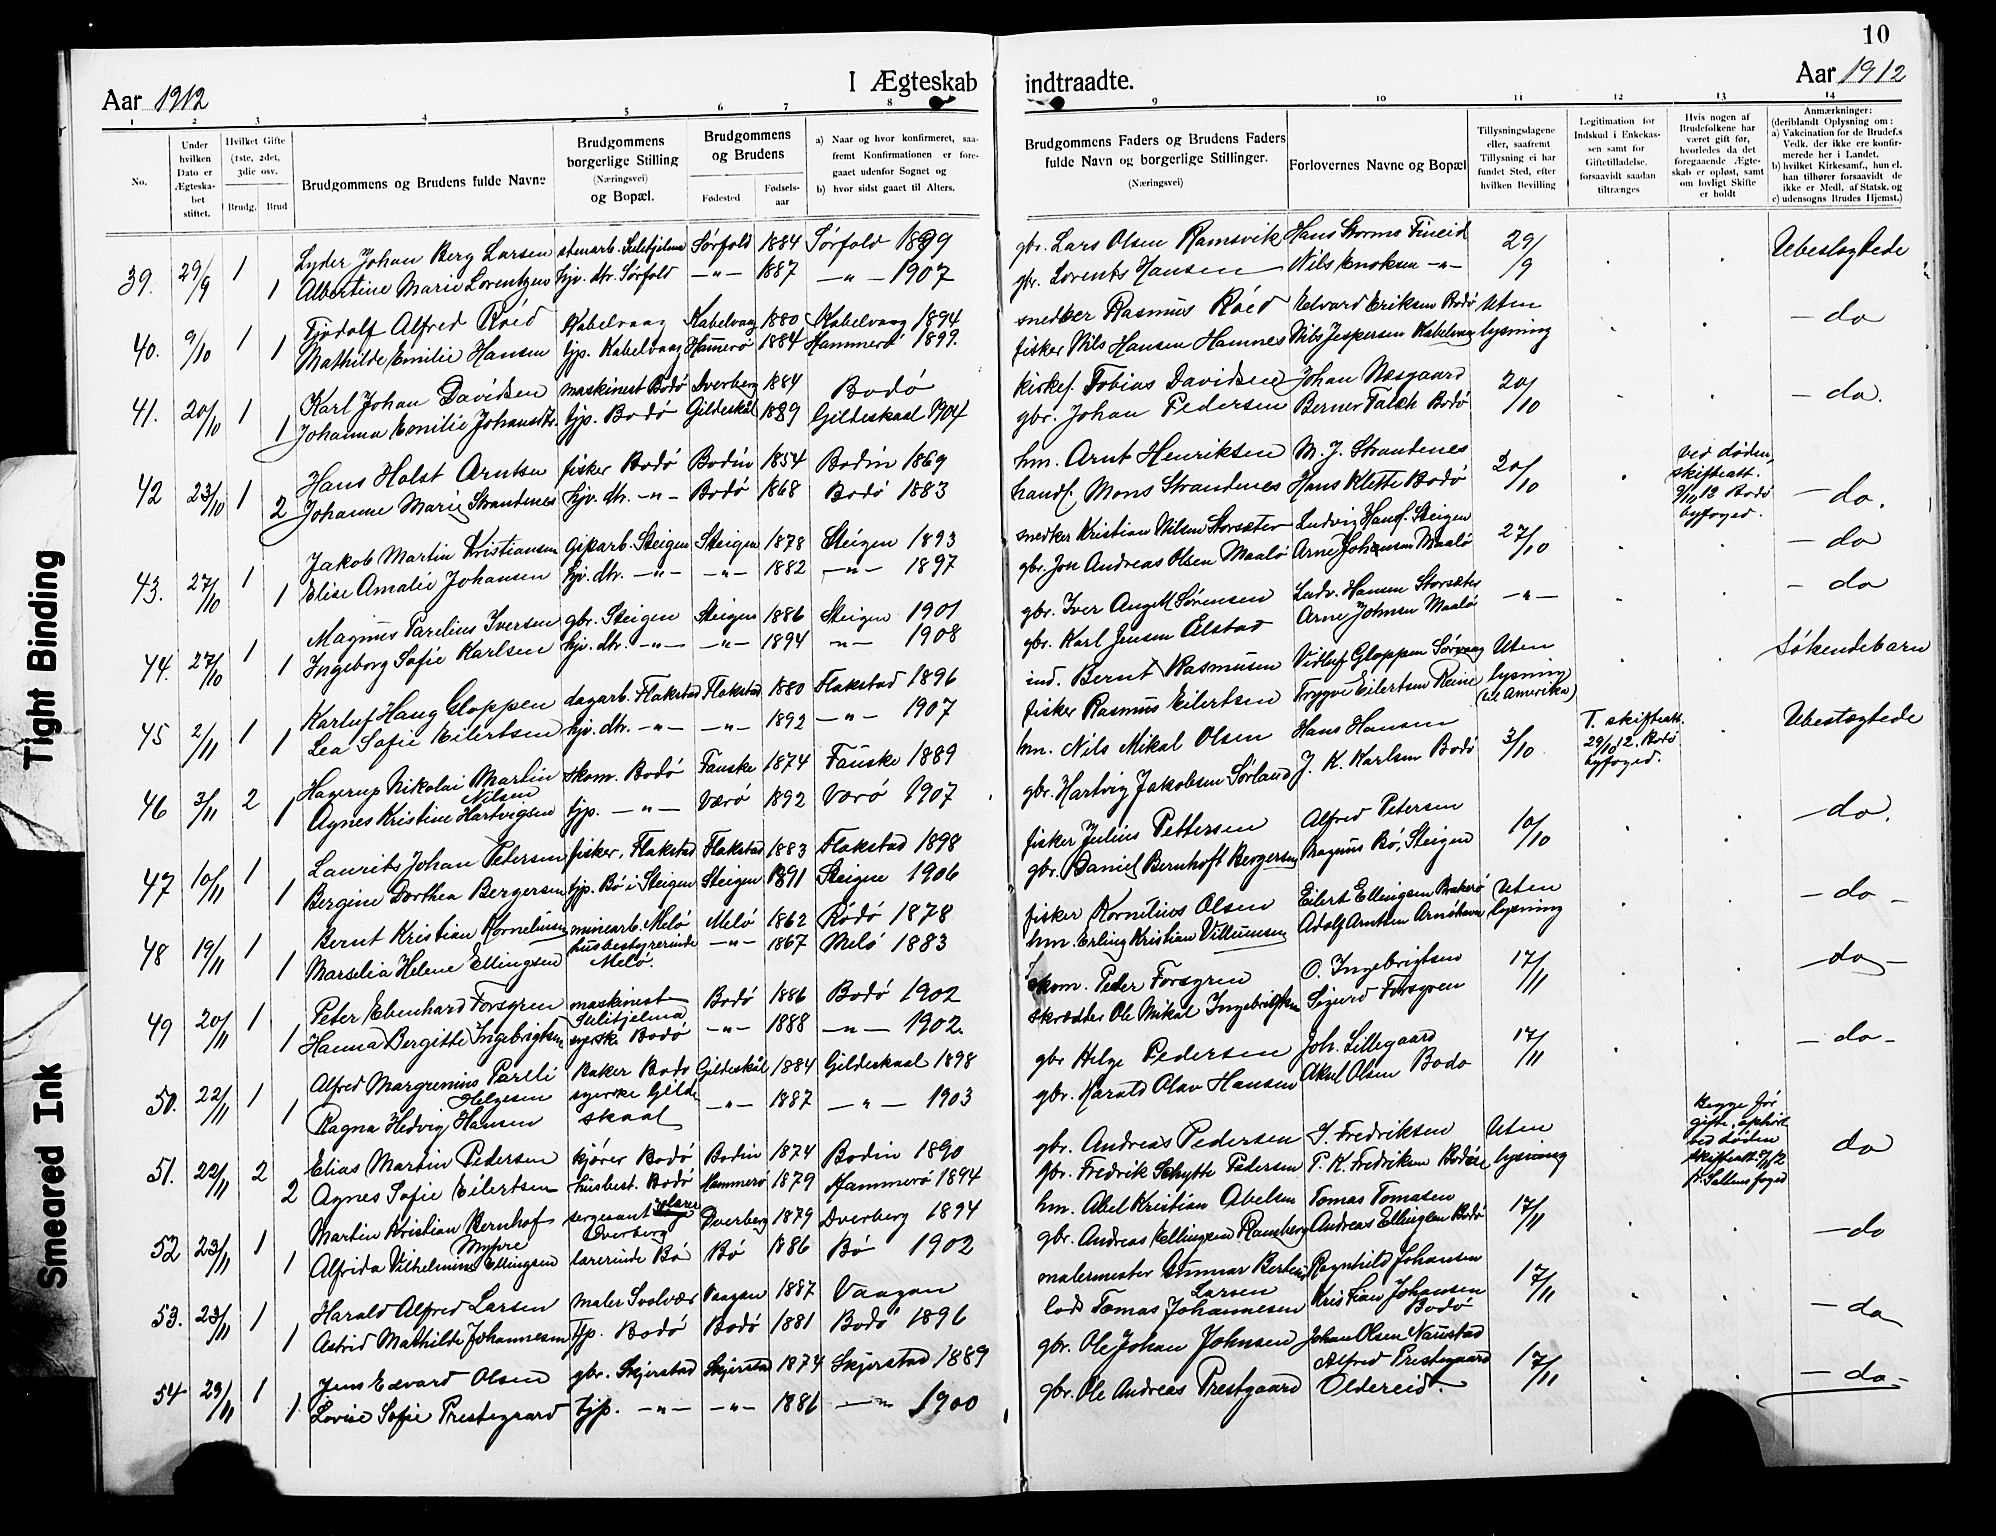 10
Aar 1912
I Ægteskab indtraadte.
Aar 1912
1 2 3 4 5 6 7 8 9 10 11 12 13 14
No.
Under hvilken Dato er Ægteskabet stiftet.
Hvilket Gifte (1ste, 2det, 3die osv.
Brudg. Brud
Brudgommens og Brudens fulde Navne
Brudgommens borgerlige Stilling (Næringsvei) og Bopæl.
Brudgommens og Brudens
Fødested
Fødselsaar
a) Naar og hvor konfirmeret, saafremt Konfirmationen er foregaaet udenfor Sognet og
b) hvor sidst gaaet til Alters.
Brudgommens Faders og Brudens Faders fulde Navn og borgerlige Stillinger.
(Næringsvei)
Forlovernes Navne og Bopæl
Tillysningsdagene eller, saafremt Tillysning ei har fundet Sted, efter hvilken Bevilling
Legitimation for Indskud i Enkekassen samt for Giftetilladelse, forsaavidt saadan tiltrænges
Hvis nogen af Brudefolkene har været gift før, hvorledes da det foregaaende Ægteskab er opløst, samt om lovligt Skifte er holdt
Anmærkninger: (deriblandt Oplysning om:
a) Vakcination for de Brudef.s Vedk. der ikke ere konfirmerede her i Landet.
b) hvilket Kirkesamf., hun el. han tilhører forsaavidt de ikke er Medl. af Statsk. og
c) udensogns Brudes Hjemst.)
39. 29/9 1 Lyder Johan Berg Larsen stenarb. Sulitjelma Sørfold 1884 Sørfold 1899 gbr. Lars Olsen Ramsvik Hans Storms Fineid 29/9 Ubeslegtede
1 Albertine Marie Lorentzen hjv. dtr. Sørfold -"- 1887 -"- 1907 gbr. Lorents Hansen Nils Enoksen -"-
40. 9/10 1 Tjodolf Alfred Roed Kabelvaag Kabelvaag 1880 Kabelvaag 1894 snedker Rasmus Roed Edvard Eriksen Bodø Uten lysning - do
1 Mathilde Emilie Hansen tjp. Kabelvaag Hammerø 1884 Hammerø 1899. fisker Nils Hansen Hamnes Nils Jespersen Kabelvaag
41. 20/10 1 Karl Johan Davidsen maskinest Bodø Dverberg 1884 Bodø kirkes. Tobias Davidsen Johan Næsgaard 20/10 - do.
1 Johanna Emilie Johansdtr. tjp. Bodø Gildeskål 1889 Gildeskaal 1904 gbr. Johan Pedersen Berner Falch Bodø
42 23/10 1 Hans Holst Arntsen fisker Bodø Bodin 1854 Bodin 1869 hm. Arnt Henriksen M. J. Strandenes 20/10 ved døden, skifteatt. 9/10 12 Bodø byfoged. - do.
2 Johanne Marie Strandenes hjv. dtr. -"- Bodø 1868 Bodø 1883 handl. Mons Strandenes Hans Klette Bodø
43. 27/10 1 Jakob Martin Kristiansen Giparb. Steigen Steigen 1878 Steigen 1893 snedker Kristian Nilsen Storsæter Ludvig Hans. Steigen 27/10 - do
1 Elise Amalie Johansen hjv. dtr. -"- -"- 1882 -"- 1897 gbr. Jon Andreas Olsen Maalø Arne Johnsen Maalø
44. 27/10 1 Magnus Parelius Iversen gbr. Steigen Steigen 1886 Steigen 1901 gbr. Iver Angell Sørensen Ludv. Hansen Storsæter -"- - do
1 Ingeborg Sofie Karlsen hjv. dtr. -"- -"- 1894 -"- 1908 gbr. Karl Jensen Elstad Arne Johnsen Maalø
45 2/11 1 Karluf Haug Gloppen dagarb. Flakstad Flakstad 1880 Flakstad 1896 ind. Bernt Rasmusen Vidluf Gloppen Sørvaag Uten lysning (til Amerika) Søskendebarn
1 Lea Sofie Eilertsen hjv. dtr. -"- -"- 1892 -"- 1907 fisker Rasmus Eilertsen Trygve Eilertsen Reine
46 3/11 2 Hagerup Nikolai Martin Nilsen skom. Bodø Fauske 1874 Fauske 1889 hm. Nils Mikal Olsen Hans Hansen 3/10 T. skifteatt. 29/10 12, Bodø byfoged. Ubeslegtede
1 Agnes Kristine Hartvigsen tjp. -"- Værø 1892 Værø 1907 gbr. Hartvig Jakobsen Sørland J. K. Karlsen Bodø
47 10/11 1 Laurits Johan Petersen fisker, Flakstad Flakstad 1883 Flakstad 1898 fisker Julius Pettersen Alfred Petersen 10/10 - do.
1 Bergine Dorthea Bergersen tjp. Bø i Steigen Steigen 1891 Steigen 1906 gbr. Daniel Bernhoft Bergersen Magnus Bø, Steigen
48 19/11 1 Bernt Kristian Korneliussen minearb. Melø Melø 1862 Rödø 1878 fisker Kornelius Olsen Eilert Ellingsen Brakerø Uten lysning - do -
1 Marselia Helene Ellingsen husbestyrerinde Melø. -"- 1867 Melø 1883 hm. Erling Kristian Villumsen Adolf Arntsen Arnøhavn
49 20/11 1 Peter Ebenhard Forsgren maskinist Sulitjelma Bodø 1886 Bodø 1902 skom. Peder Forsgren O. Ingebrigtsen 17/11 - do -
1 Hanna Bergitte Ingebrigtsen syerske Bodø -"- 1888 -"- 1902. skrædder Ole Mikal Ingebrigtsen Sigurd Forsgren
50. 22/11 1 Alfred Margrenius Parelli Helgesen Baker Bodø Gildeskål 1884 Gildeskaal 1898 gbr Helge Pedersen Joh. Lillegaard 17/11 - do -
1 Ragna Hedvig Hansen syerske Gildeskaal -"- 1887 -"- 1903 gbr. Harald Olav Hansen Aksel Olsen Bodø
51. 22/11 2 Elias Martin Pedersen kjører Bodø Bodin 1874 Bodin 1890 gbr. Andreas Pedersen S. Fredriksen Uten lysning Begge før gifte, ophört ved døden do
2 Agnes Sofie Eilertsen husbest. Bodø Hammerø 1879 Hammerø 1894 gbr. Fredrik Schytte Pedersen P. K. Fredriksen Bodøsi
52 23/11 1 Martin Kristian Bernhof Myhre sergeant Dverberg Dverberg 1879 Dverberg 1894 hm. Abel Kristian Abelsen Tomas Tomasen 17/11 - do
1 Alfrida Vilhelmine Ellingsen lærerinde Bø Bø 1886 Bø 1902 gbr. Andreas Ellingsen Ramberg Andreas Ellingsen Bodø
53. 23/11 1 Harald Alfred Larsen maler Svolvær Vaagan 1887 Vaagan malermester Gunnar Bertens Larsen Ragnhild Johansen 17/11 - do
1 Astrid Mathilde Johannesen tjp. Bodø Bodø 1881 Bodø 1896 lods Tomas Johannesen Kristian Johansen Bodø
54 29/11 1 Jens Edvard Olsen gbr. Skjerstad Skjerstad 1874 Skjerstad 1889 gbr. Ole Johan Johnsen Johan Olsen Naurstad 17/11 - do -
1. Lovise Sofie Prestegaard tjp. -"- -"- 1886 -"- 1900 gbr. Ole Andreas Prestgaard Alfred Prestegaard Oldereid.
Tight Binding
Smeared Ink